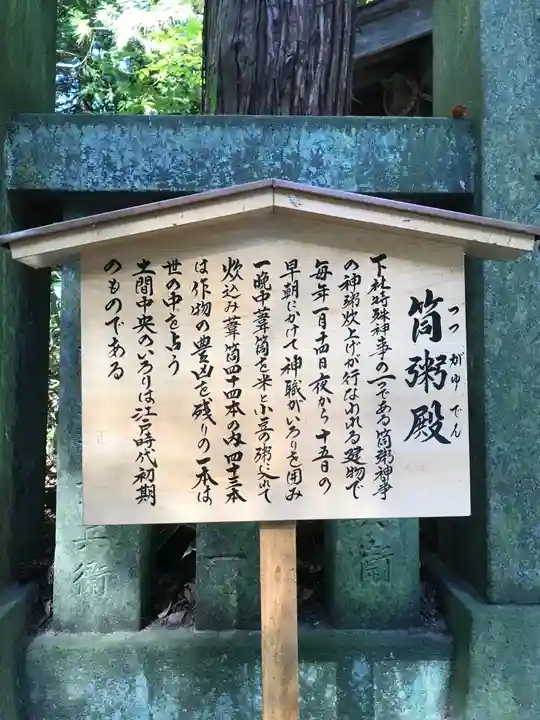 筒粥殿
つつ がゆ でん
下社特殊神事の一つである筒粥神事
の神粥炊上げが行なわれる建物で
毎年一月十四日夜から十五日の
早朝にかけて神職がいろりを囲み
一晩中葦筒を米と小豆の粥に入れて
炊込み葦筒四十四本の内四十三本
は作物の豊凶を残りの一本は
世の中を占う
土間中央のいろりは江戸時代初期
のものである
兵衛
衛